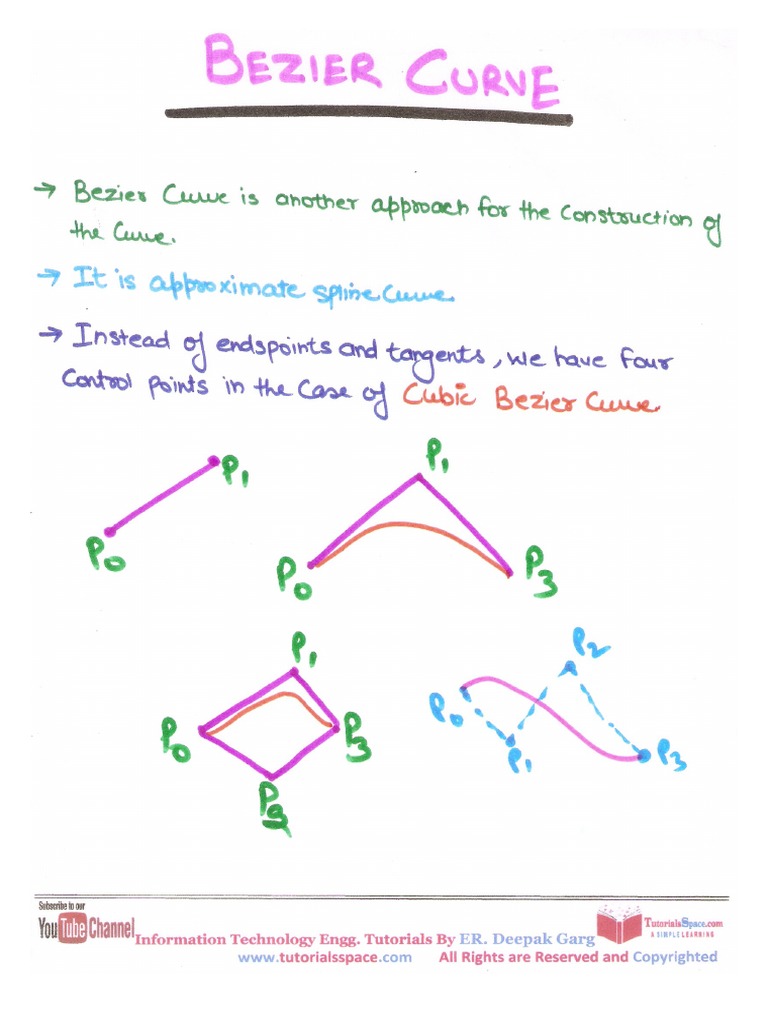 BEZIER CURVE
→ Bezier Curve is another approach for the Construction of
the Curve.
→ It is approximate spline Curve.
→ Instead of endspoints and tangents, we have four
Control points in the Case of Cubic Bezier Curve.
P1
P0
P1
P0
P3
P1
P0
P3
P2
P0
P1
P3
Subscribe to our
YouTube Channel
Information Technology Engg. Tutorials By ER. Deepak Garg
TutorialsSpace.com
A SIMPLE LEARNING
www.tutorialsspace.com All Rights are Reserved and Copyrighted